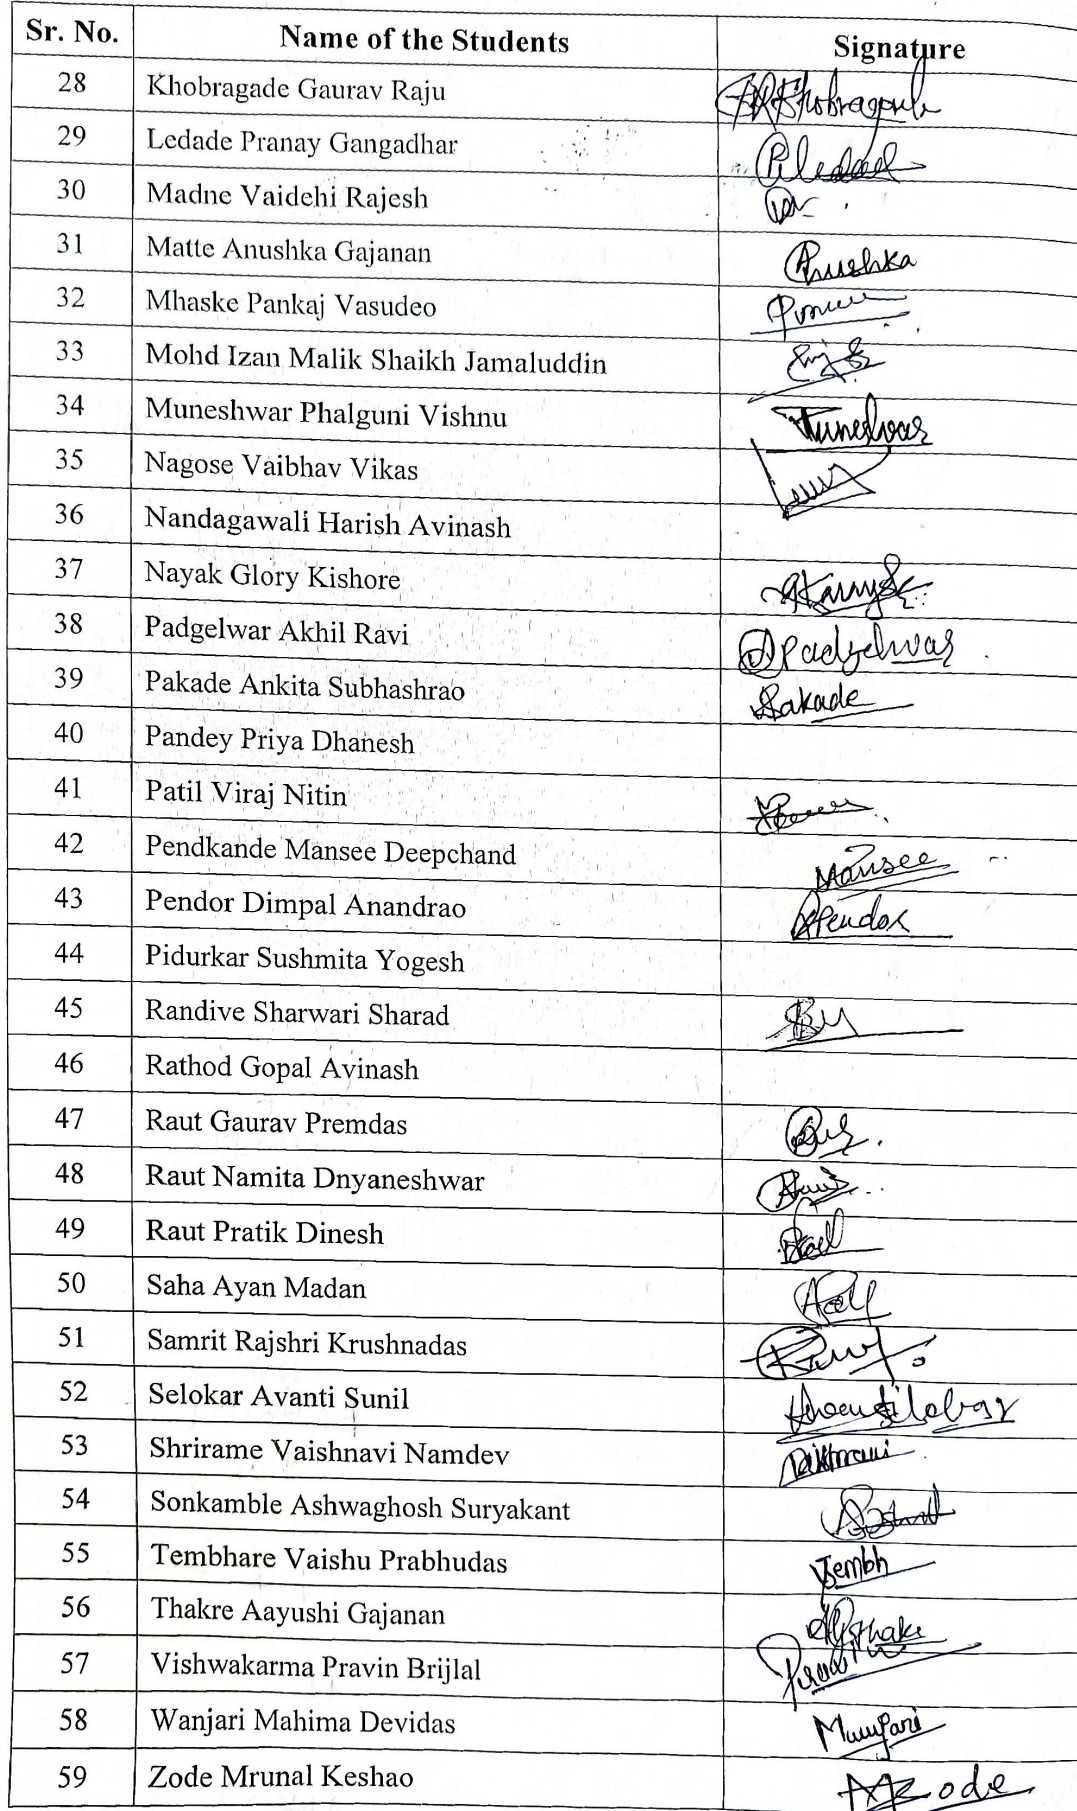 Sr. No. Name of the Students Signature
28 Khobragade Gaurav Raju
29 Ledade Pranay Gangadhar
30 Madne Vaidehi Rajesh
31 Matte Anushka Gajanan Anushka
32 Mhaske Pankaj Vasudeo
33 Mohd Izan Malik Shaikh Jamaluddin
34 Muneshwar Phalguni Vishnu
35 Nagose Vaibhav Vikas
36 Nandagawali Harish Avinash
37 Nayak Glory Kishore
38 Padgelwar Akhil Ravi APadgelwar
39 Pakade Ankita Subhashrao
40 Pandey Priya Dhanesh
41 Patil Viraj Nitin
42 Pendkande Mansee Deepchand Mansee
43 Pendor Dimpal Anandrao
44 Pidurkar Sushmita Yogesh
45 Randive Sharwari Sharad
46 Rathod Gopal Avinash
47 Raut Gaurav Premdas
48 Raut Namita Dnyaneshwar
49 Raut Pratik Dinesh
50 Saha Ayan Madan
51 Samrit Rajshri Krushnadas
52 Selokar Avanti Sunil
53 Shrirame Vaishnavi Namdev
54 Sonkamble Ashwaghosh Suryakant
55 Tembhare Vaishu Prabhudas
56 Thakre Aayushi Gajanan
57 Vishwakarma Pravin Brijlal
58 Wanjari Mahima Devidas
59 Zode Mrunal Keshao